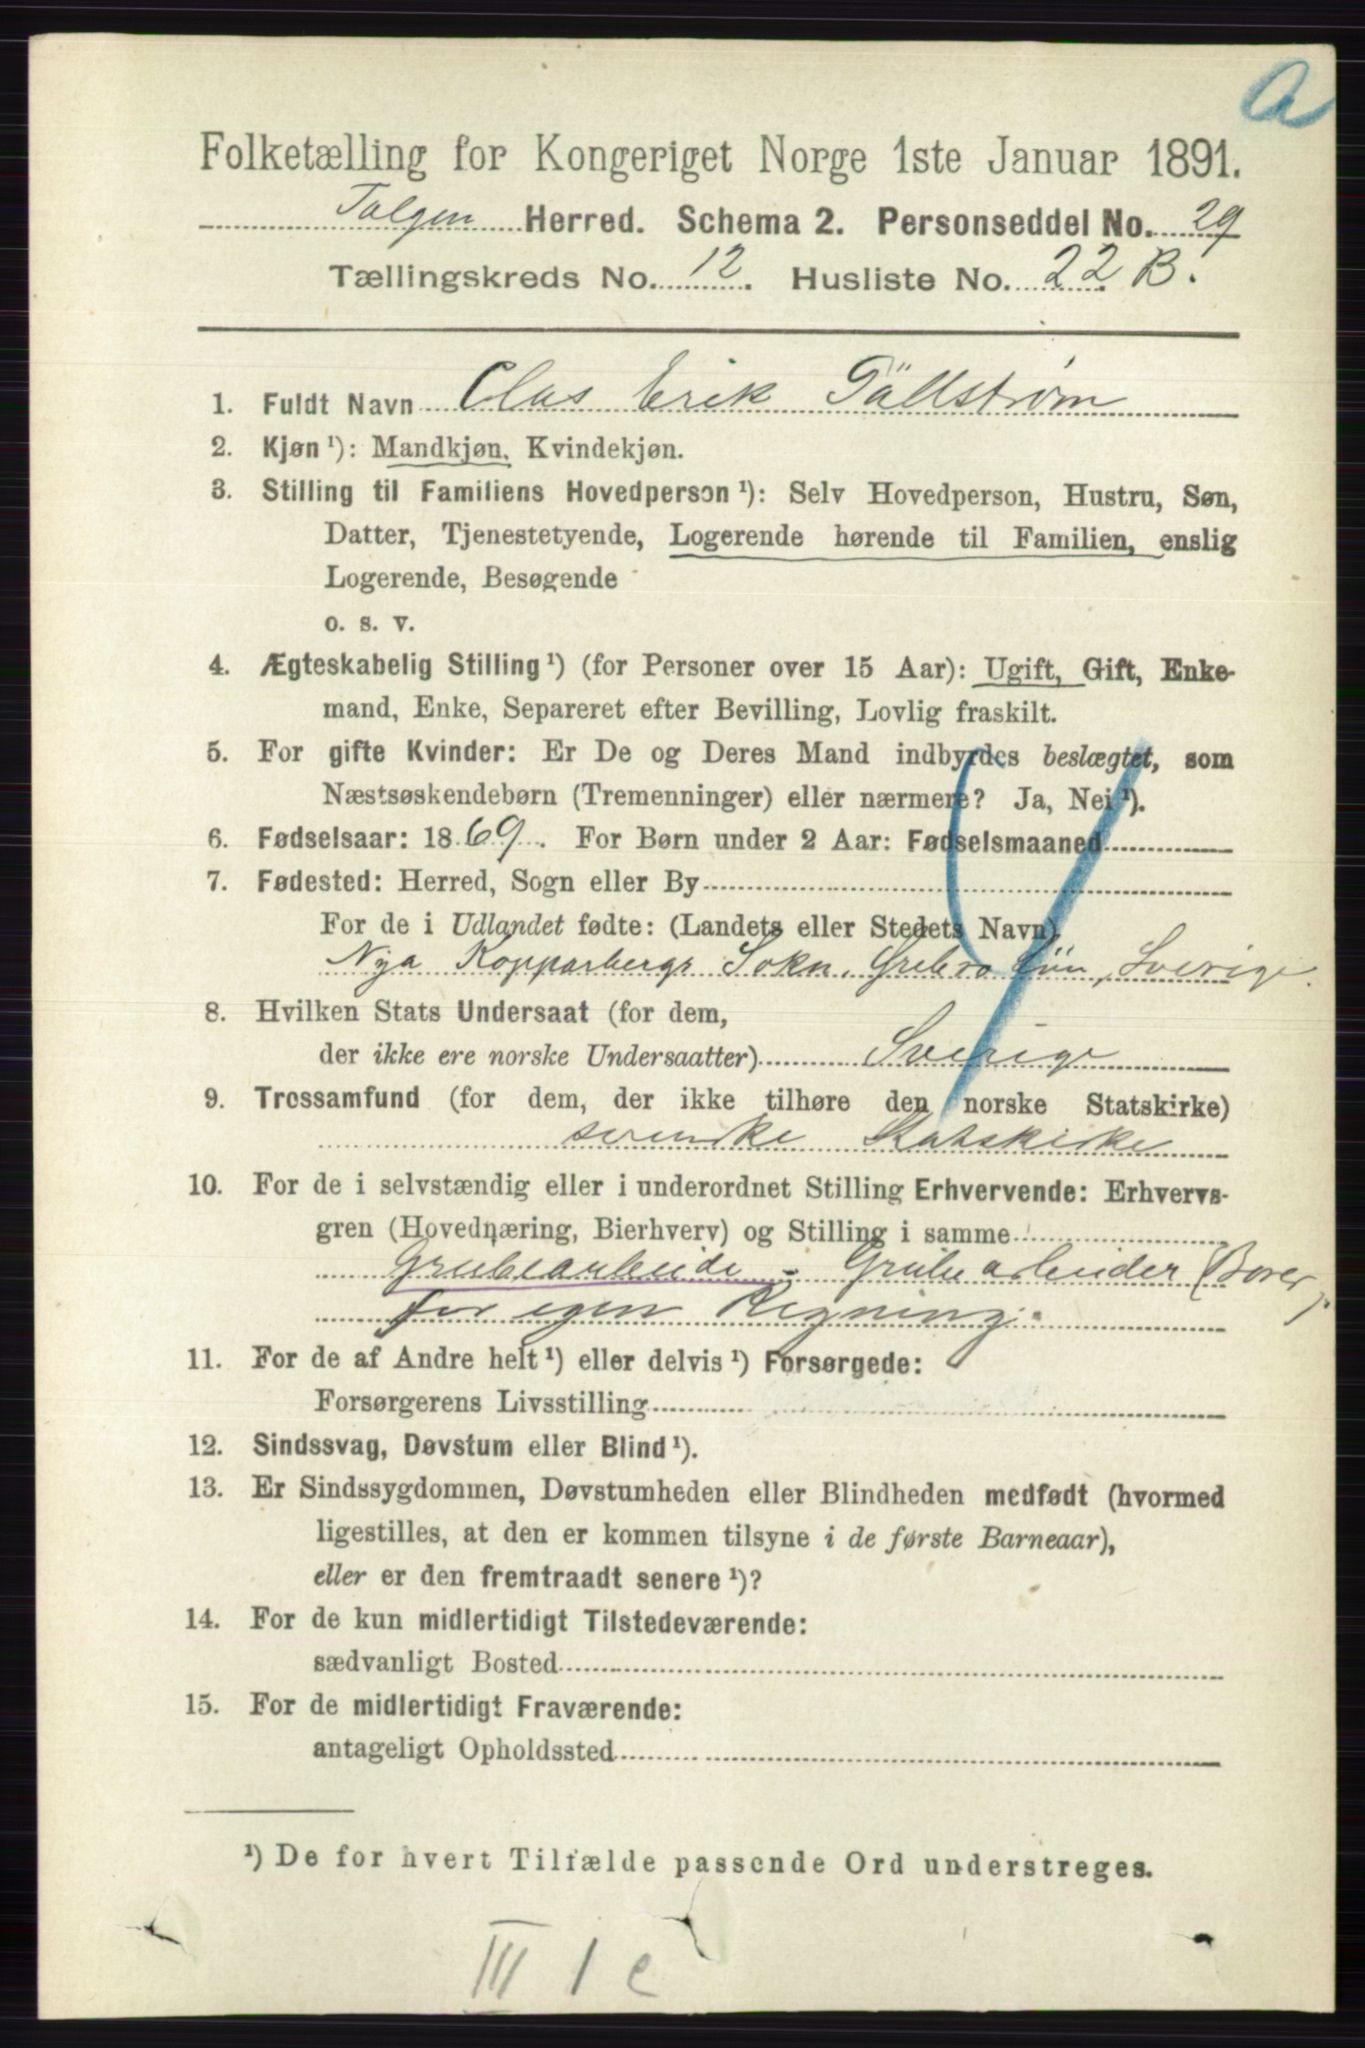 a
Folketælling for Kongeriget Norge 1ste Januar 1891.
Tolgen Herred. Schema 2. Personseddel No. 29
Tællingskreds No. 12. Husliste No. 22 B.
1. Fuldt Navn Clas Erik Tällstrøm
2. Kjøn ¹): Mandkjøn, Kvindekjøn.
3. Stilling til Familiens Hovedperson ¹): Selv Hovedperson, Hustru, Søn,
Datter, Tjenestetyende, Logerende hørende til Familien, enslig
Logerende, Besøgende
o. s. v.
4. Ægteskabelig Stilling ¹) (for Personer over 15 Aar): Ugift, Gift, Enke-
mand, Enke, Separeret efter Bevilling, Lovlig fraskilt.
5. For gifte Kvinder: Er De og Deres Mand indbyrdes beslægtet, som
Næstsøskendebørn (Tremenninger) eller nærmere? Ja, Nei ¹).
6. Fødselsaar: 1869. For Børn under 2 Aar: Fødselsmaaned
7. Fødested: Herred, Sogn eller By
For de i Udlandet fødte: (Landets eller Stedets Navn)
Nya Kopparbergs Sokn, Ørebro Län, Sverige.
8. Hvilken Stats Undersaat (for dem,
der ikke ere norske Undersaatter) Sverige
9. Trossamfund (for dem, der ikke tilhøre den norske Statskirke)
svenske Statskirke
10. For de i selvstændig eller i underordnet Stilling Erhvervende: Erhvervs-
gren (Hovednæring, Bierhverv) og Stilling i samme
Grubearbeide - Grubearbeider (Borer,
for egen Regning.
11. For de af Andre helt ¹) eller delvis ¹) Forsørgede:
Forsørgerens Livsstilling
12. Sindssvag, Døvstum eller Blind ¹).
13. Er Sindssygdommen, Døvstumheden eller Blindheden medfødt (hvormed
ligestilles, at den er kommen tilsyne i de første Barneaar),
eller er den fremtraadt senere ¹)?
14. For de kun midlertidigt Tilstedeværende:
sædvanligt Bosted
15. For de midlertidigt Fraværende:
antageligt Opholdssted
¹) De for hvert Tilfælde passende Ord understreges.
III 1 c